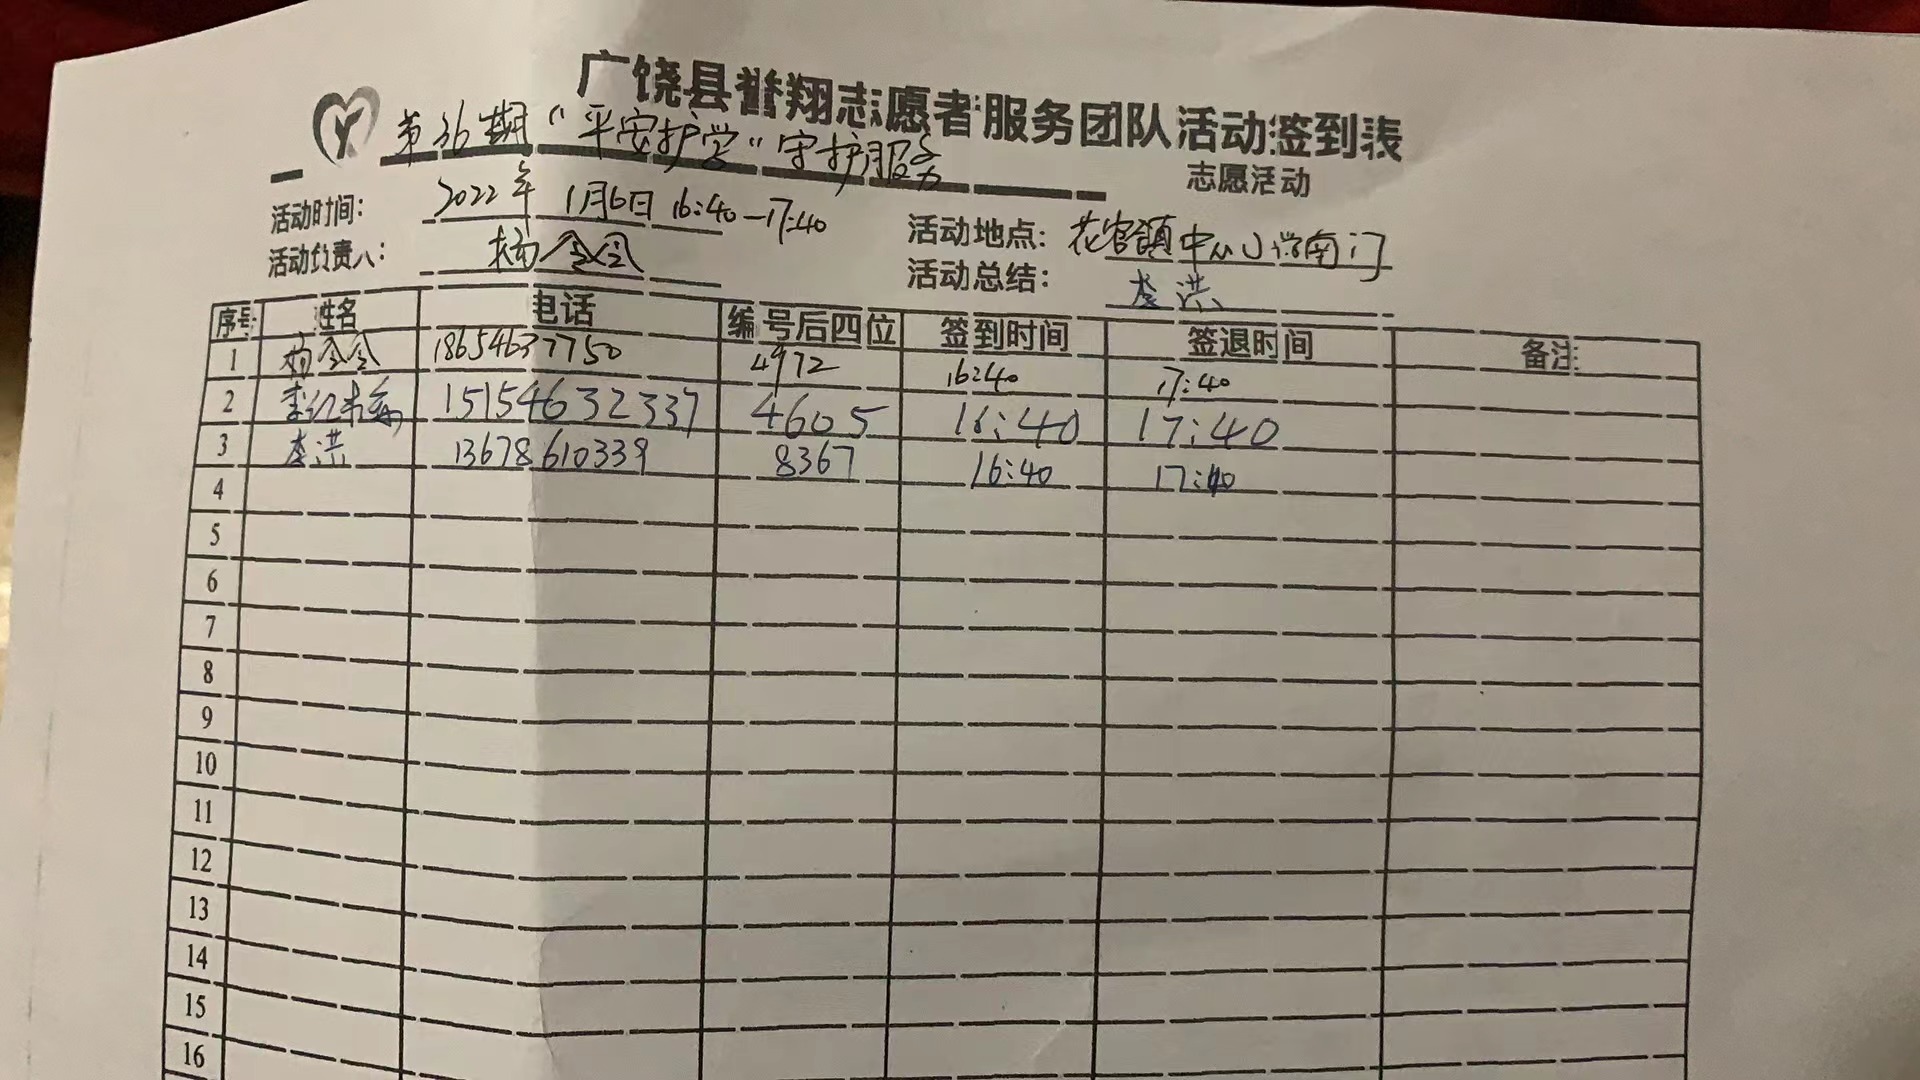 广饶县誉翔志愿者服务团队活动签到表
第36期“平安护学”守护服务 志愿活动
活动时间: 2022年1月6日 16:40-17:40 活动地点: 花官镇中心小学南门
活动负责人: 杨令令 活动总结: 李洪
序号 姓名 电话 编号后四位 签到时间 签退时间 备注
1 杨令令 18654637750 4972 16:40 17:40
2 李红 15154632337 4605 16:40 17:40
3 李洪 13678610339 8367 16:40 17:40
4
5
6
7
8
9
10
11
12
13
14
15
16